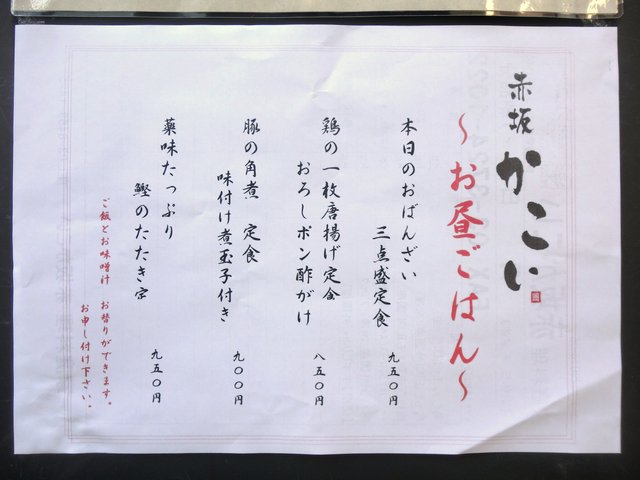 赤坂 かこい
～お昼ごはん～
本日のおばんざい
三点盛定食
九五〇円
鶏の一枚唐揚げ定食
おろしポン酢がけ
八五〇円
豚の角煮 定食
味付け煮玉子付き
九〇〇円
薬味たっぷり
鰹のたたき定
九五〇円
ご飯とお味噌汁 お替りができます。
お申し付け下さい。